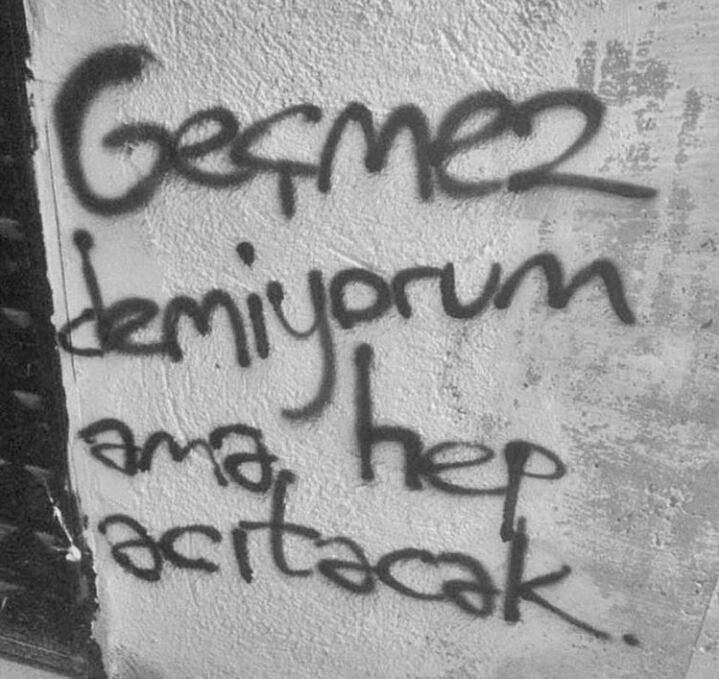 Geçmez
demiyorum
ama, hep
acıtacak.